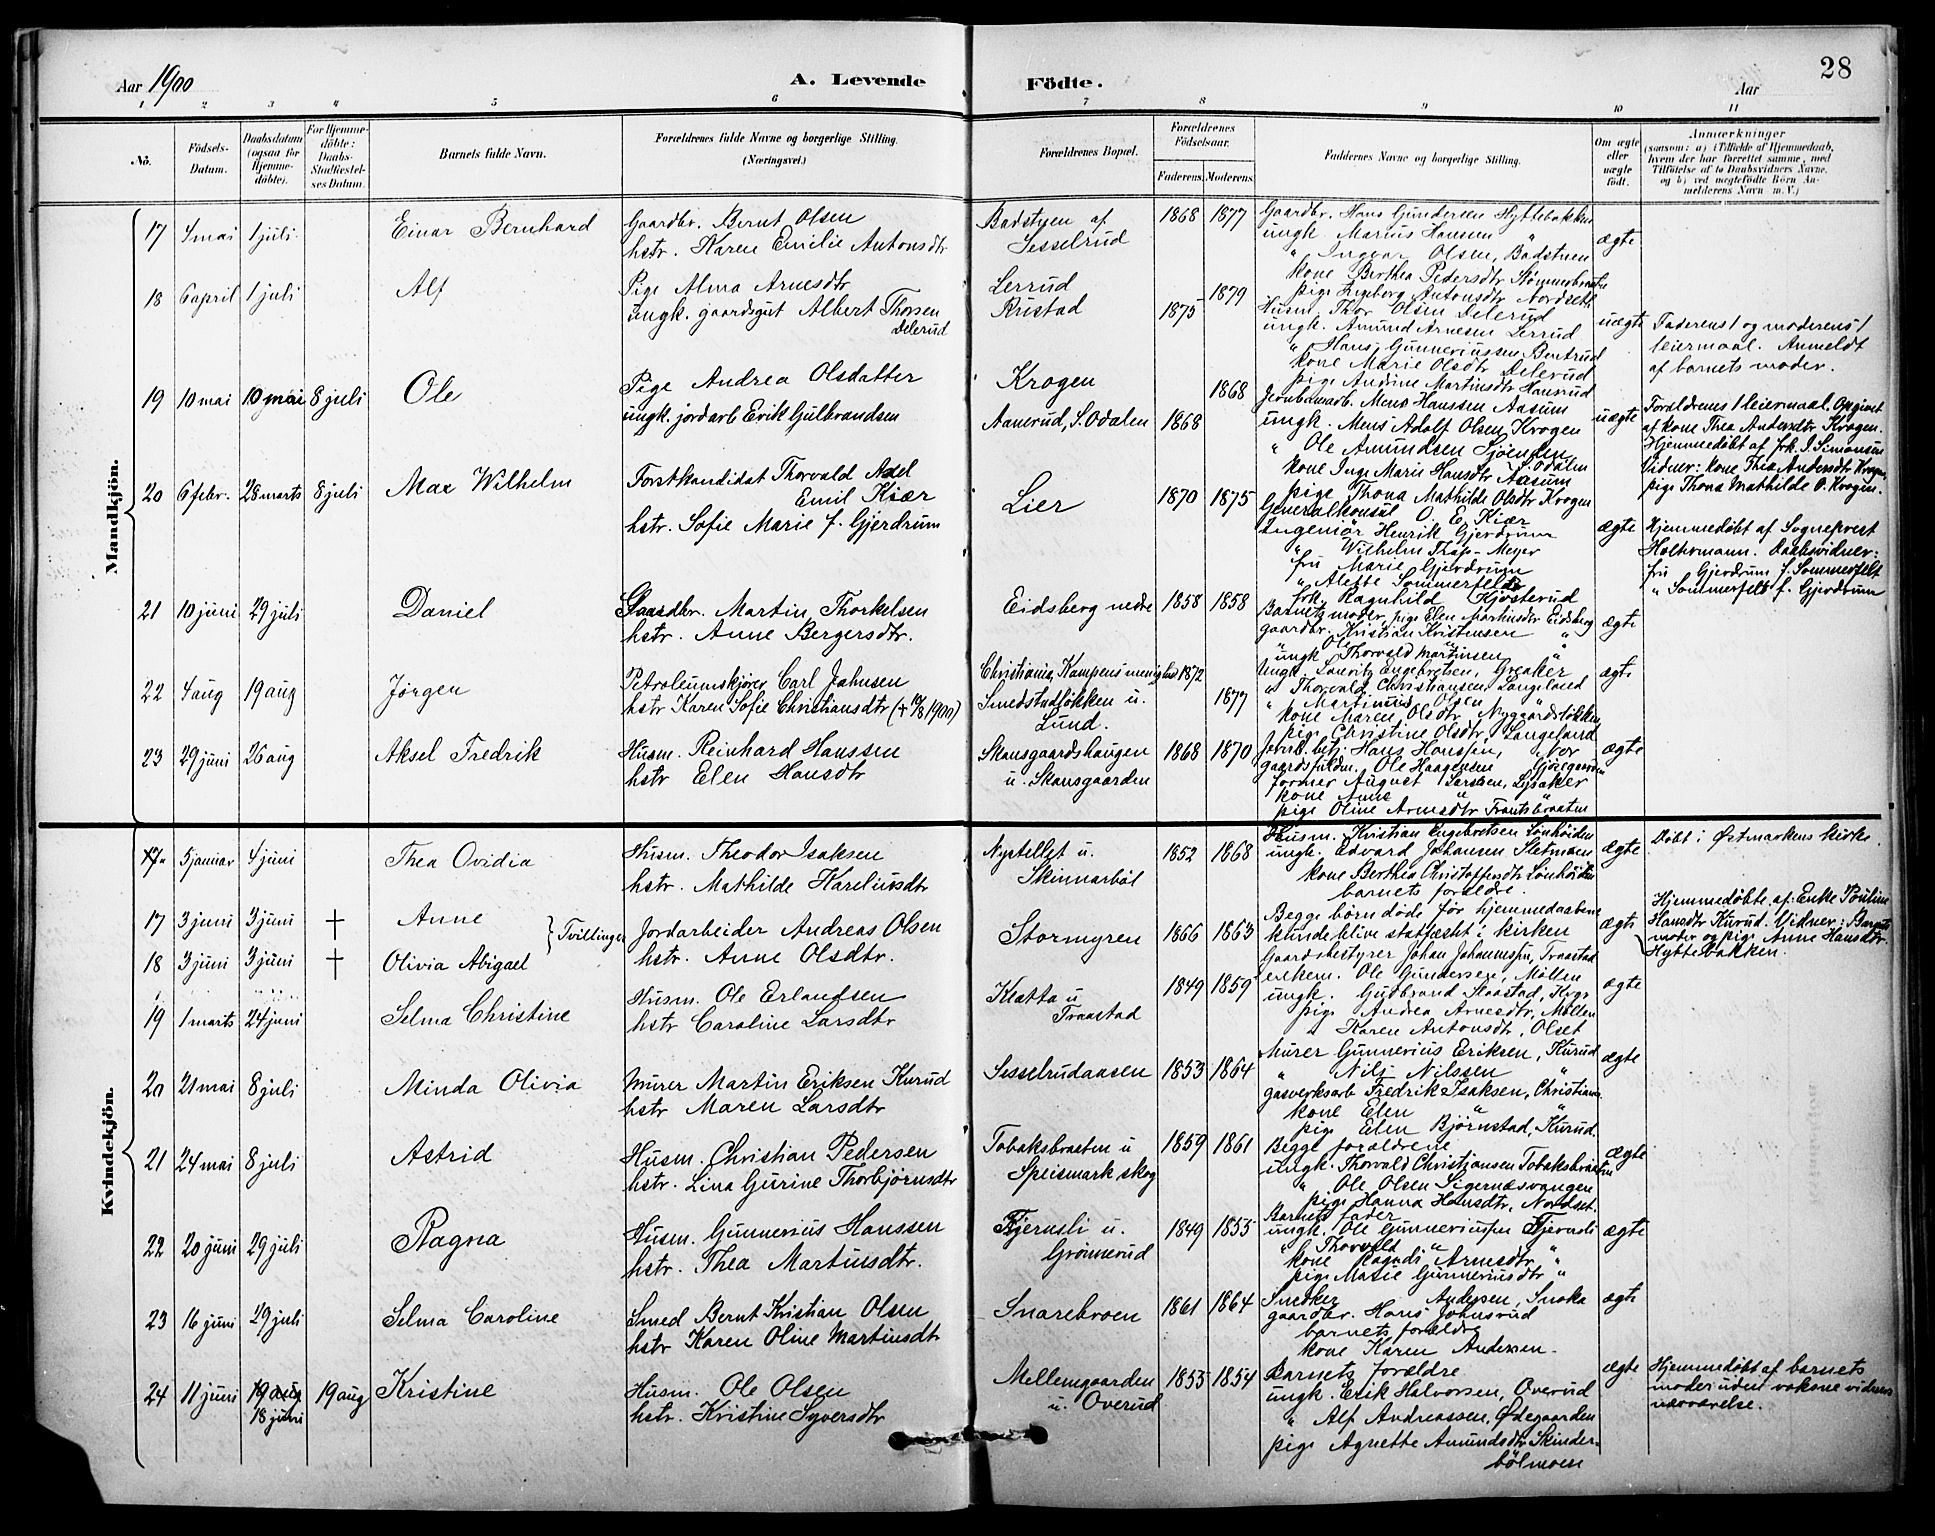 28
Aar 1900
A. Levende Födte.
Aar
1 2 3 4 5 6 7 8 9 10 11
No.
Födsels-Datum.
Daabsdatum (ogsaa for Hjemmedöbte).
For Hjemmedöbte: Daabs-Stadfæstelses Datum.
Barnets fulde Navn.
Forældrenes fulde Navne og borgerlige Stilling. (Næringsvei.)
Forældrenes Bopæl.
Forældrenes Födselsaar.
Faderens. Moderens.
Faddernes Navne og borgerlige Stilling.
Om ægte eller uægte födt.
Anmærkninger
(saasom: a) i Tilfælde af Hjemmedaab, hvem der har forrettet samme, med Tilföielse af to Daabsvidners Navne, og b) ved uægtefödte Börn Anmelderens Navn m. V.)
Mandkjön.
17 4 mai 1 juli Einar Bernhard
Gaardbr. Bernt Olsen
hstr. Karen Emilie Antonsdtr
Badstuen af
Sesselrud
1868 1877
Gaardbr. Hans Gundersen Hyttebakken
ungk. Marius Hansen "
" Ingvar Olsen, Badstuen
kone Berthea Pedersdtr
pige Ingeborg Antonsdtr Nordset
ægte
18 6 april 1 juli Alf
Pige Alma Arnesdtr
ungk. gaardsgut Albert Thorsen
Delerud
Lerrud
Rustad
1875 1879
Husm. Thor Olsen Delerud
ungk. Amund Arnesen Lerrud
" Hans Gunneriussen Bentrud
kone Marie Olsdtr Delerud
pige Andine Martinsdtr Hansrud
uægte
Faderens 1 og moderens 1
leiermaal. Anmeldt
af barnets moder.
19 10 mai 10 mai 8 juli Ole
Pige Andrea Olsdatter
ungk. jordarb Erik Gulbrandsen
Krogen
Aamrud, S. Odalen
1868 1868
Jernbanearb. Mens Hanssen Aasum
ungk. Mens Adolf Olsen, Krogen
" Ole Amundsen Sjøenden
S. Odalen
kone Inge Marie Hansdtr Aasum
pige Thona Mathilde Olsdtr Krogen
uægte
Forældrenes 1 leiermaal. Opgivet
af kone Thea Andersdtr Krogen.
Hjemmedøbt af frk. J. Simonsen
Vidner: kone Thea Andersdtr Krogen
pige Thona Mathilde O. Krogen.
20 6 febr. 28 marts 8 juli Max Wilhelm
Forstkandidat Thorvald Axel
Emil Kiær
hstr. Sofie Marie f. Gjerdrum
Lier
1870 1875
Generalkonsul O. E. Kiær
Ingeniør Henrik Gjerdrum
" Wilhelm Thap-Meyer
fru Marie Gjerdrum
" Alette Sommerfeldt
frk. Ragnhild Kjøsterud
ægte
Hjemmedøbt af Sogneprest
Holtermann. Daabsvidner:
fru Gjerdrum f. Sommerfelt
" Sommerfelt f. Gjerdrum
21 10 juni 29 juli Daniel
Gaardbr. Martin Thorkelsen
hstr. Anne Bergersdtr.
Eidsberg nedre
1858 1858
Barnets moder, pige Elen Martinsdtr Eidsberg
gaardbr. Kristian Kristensen "
Ole "
ungk Thorvald Martinsen "
ægte
22 4 aug 19 aug Jørgen
Petroleumskjører Carl Johnsen
hstr Karen Sofie Christiansdtr (+ 10/8 1900)
Christiania, Kampens menighed
Smedstadløkken u.
Lund.
1872 1877
Ungk. Lauritz Engebretsen, Greaker
" Thorvald Christiansen Langeland
" Martinius Olsen "
kone Maren Olsdtr Nygaardsløkken
pige Christine Olsdtr, Langeland
ægte
23 29 juni 26 aug Aksel Fredrik
Husm. Reinhard Hanssen
hstr Elen Hansdtr
Skansgaardshaugen
u. Skansgaarden
1868 1870
Hans Hanssen, Vor
Ole Haagensen
former August Larssen, Lysaker
kone Anne "
pige Oline Arnesdtr Frantsbraaten
ægte
Kvindekjön.
5 januar 4 juni Thea Ovidia
Husm. Theodor Isaksen
hstr. Mathilde Kareliusdtr
Nystellet u.
Skinnarböl
1852 1868
Husm. Kristian Engebretsen Lønhøiden
ungk. Edvard Johansen Sletmoen
kone Berthea Christoffersdtr Lønhøiden
barnets forældre.
ægte
Døbt i Østmarkens kirke.
17 3 juni 3 juni † Anne
18 3 juni 3 juni † Olivia Abigael
} Tvillinger
Jordarbeider Andreas Olsen
hstr. Anne Olsdtr.
Stormyren
1866 1863
Begge børn døde før hjemmedaabene
kunde blive stadfæstet i kirken
ægte
Hjemmedøbte af: Enke Pouline
Hansdtr Kurud. Vidner: Barnets
moder og pige Anne Hansdtr.
Hyttebakken.
19 1 marts 24 juni Selma Christine
Husm. Ole Erlandsen
hstr Caroline Larsdtr
Kletta u
Traastad
1849 1859
Gaardsbestyrer Johan Johannessen, Traastad
enkem. Ole Gundersen, Møllen
ungk. Gudbrand Skaastad, Kvgr
pige Andrea Arnesdtr, Møllen
" Karen Antonsdtr, Olset
ægte
20 21 mai 8 juli Minda Olivia
Murer Martin Eriksen Kurud
hstr Maren Larsdtr
Sesselrudaasen
1853 1864
Murer Gunnerius Eriksen, Kurud
" Nils Nilssen "
gasverksarb Fredrik Isaksen, Christiania
kone Elen " "
pige Elen Bjørnstad, Kurud.
ægte
21 24 mai 8 juli Astrid
Husm. Christian Pedersen
hstr. Lina Gurine Thorbjørnsdtr
Tobaksbraaten u
Speismark skog
1859 1861
Begge forældrene
ungk. Thorvald Christiansen Tobaksbraaten
" Ole Olsen Sigernæsvangen
pige Hanna Hansdtr, Nordset.
ægte
22 20 juni 29 juli Ragna
Husm. Gunnerius Hanssen
hstr. Thea Martinsdtr.
Fjernsli u.
Grønnerud
1849 1855
Barnets fader
ungk. Ole Gunneriussen Fjernsli
" Thorvald " "
kone Ragndi Arnesdtr "
pige Marie Gunneriusdtr "
ægte
23 16 juni 29 juli Selma Caroline
Smed Bernt Kristian Olsen
hstr Karen Oline Martinsdtr
Snarebroen
1861 1864
Snedker Andersen, Snoka
gaardbr. Hans Johnsrud
barnets forældre
kone Karen Andersen
ægte
24 11 juni 19 aug 18 juni 19 aug Kristine
Husm. Ole Olsen
hstr. Kristine Syversdtr
Mellemgaarden
u. Overud
1855 1854
Barnets forældre
ungk. Erik Halvorsen, Overud
" Alf Andreassen, Ødegaarden
pige Agnette Amundsdtr Skinder-
bölmoen
ægte
Hjemmedøbt af barnets
moder uden voksne vidners
nærværelse.